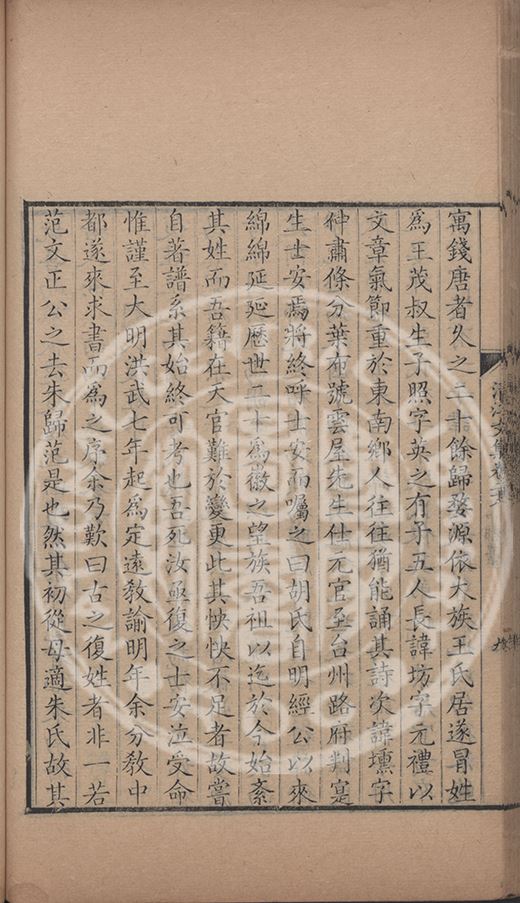 寓錢唐者久之二十餘歸婺源依大族王氏居遂冒姓
爲王茂叔生子照字英之有子五人長諱坊字元禮以
文章氣節重於東南鄉人往往猶能誦其詩次諱壎字
仲肅條分葉布號雲屋先生仕元官至台州路府判寔
生士安焉將終呼士安而囑之曰胡氏自明經公以來
綿綿延延歷世二十爲徽之望族吾祖以迄於今始紊
其姓而吾籍在天官難於變更此其怏怏不足者故嘗
自著譜系其始終可考也吾死汝亟復之士安泣受命
惟謹至大明洪武七年起爲定遠敎諭明年余分敎中
都遂來求書而爲之序余乃歎曰古之復姓者非一若
范文正公之去朱歸范是也然其初從母適朱氏故其